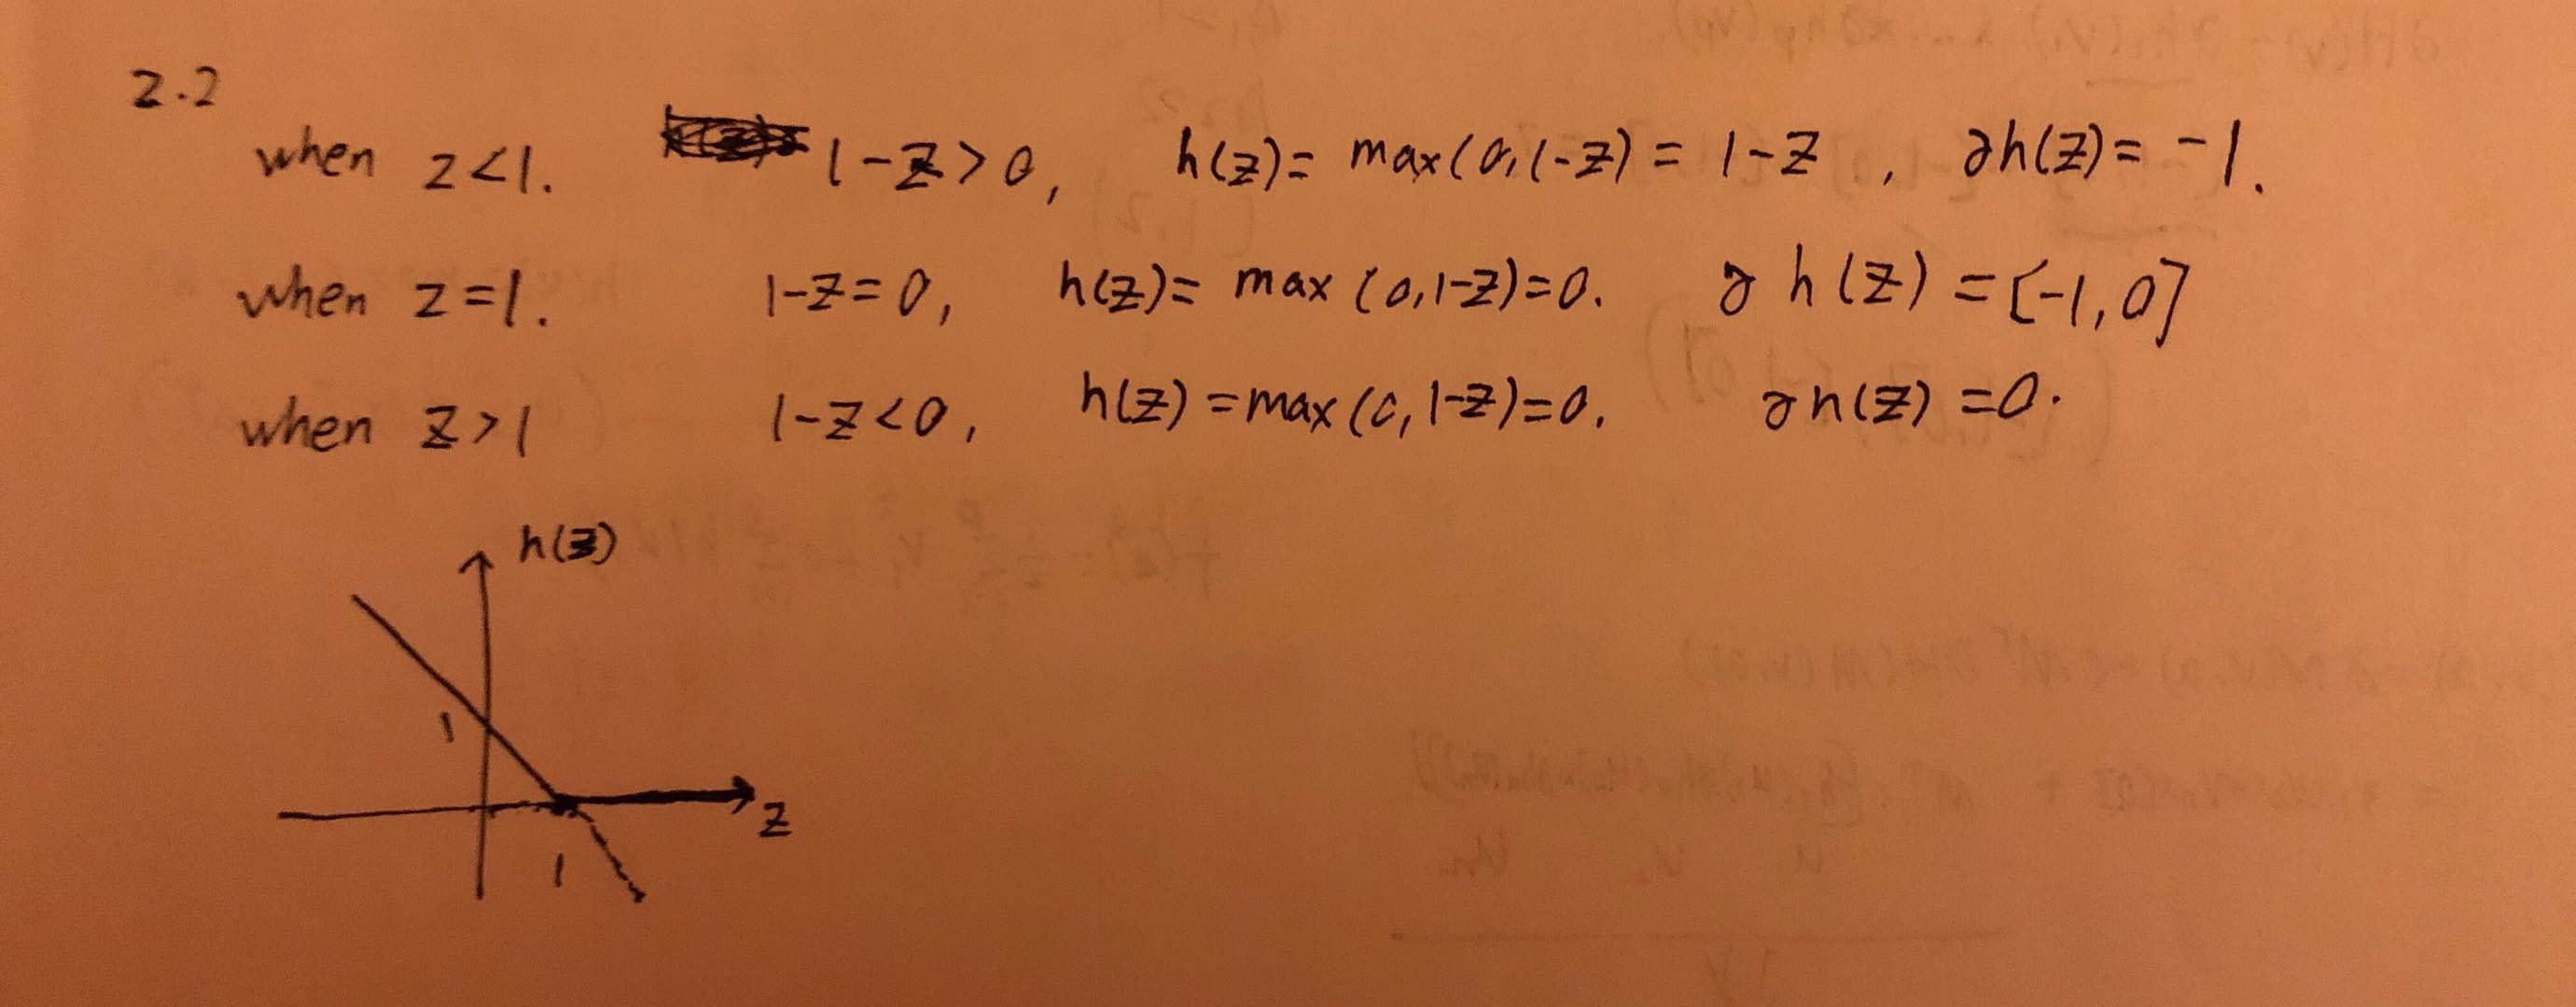 2.2
when z<1. 1-z>0, h(z)= max(0,1-z) = 1-z , ∂h(z)= -1.
when z=1. 1-z=0, h(z)= max (0,1-z)=0. ∂ h (z) =[-1,0]
when z>1 1-z<0, h(z) =max (0,1-z)=0. ∂h(z) =0.
h(z)
1
z
1